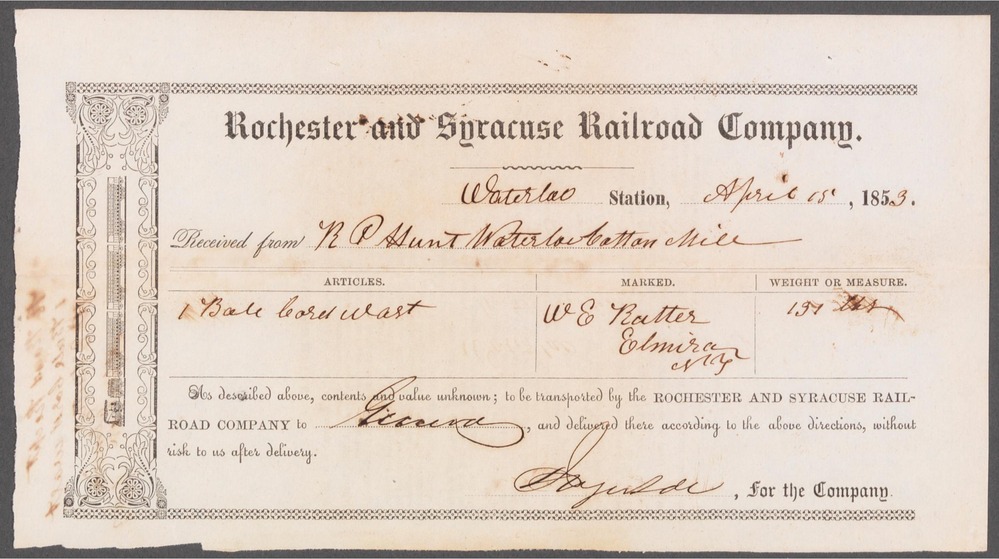 Rochester and Syracuse Railroad Company.
Waterloo Station, April 15, 1853.
Received from R P Hunt Waterloo Cotton Mill
ARTICLES. MARKED. WEIGHT OR MEASURE.
1 Bale Cord Wast W E Ratter 157 lbs
Elmira
N Y
As described above, contents and value unknown; to be transported by the ROCHESTER AND SYRACUSE RAIL-
ROAD COMPANY to Geneva, and delivered there according to the above directions, without
risk to us after delivery.
, For the Company.